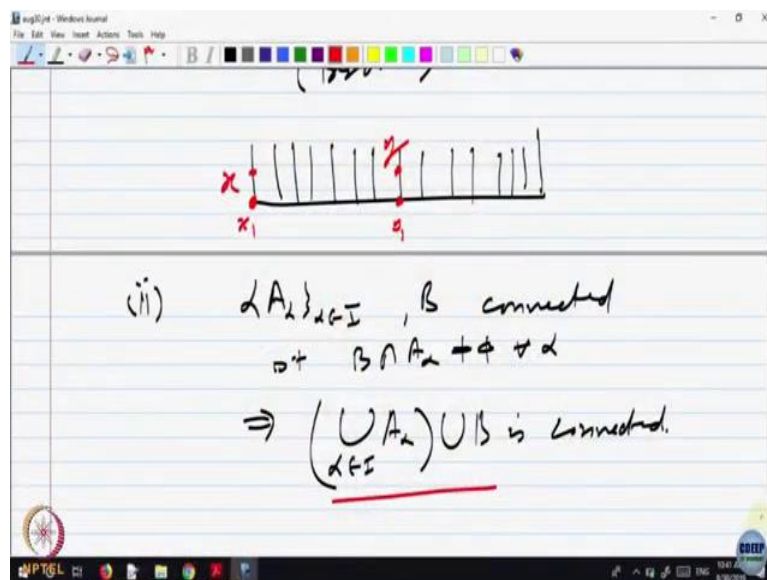 aug30.jnt - Windows Journal
File Edit View Insert Actions Tools Help
B I
x
y
x₁
(ii) {A_α}_{α∈I}, B connected
B ∩ A_α ≠ ϕ ∀ α
⇒ (⋃_{α∈I} A_α) ∪ B is connected.
NPTEL
CDEEP
ENG